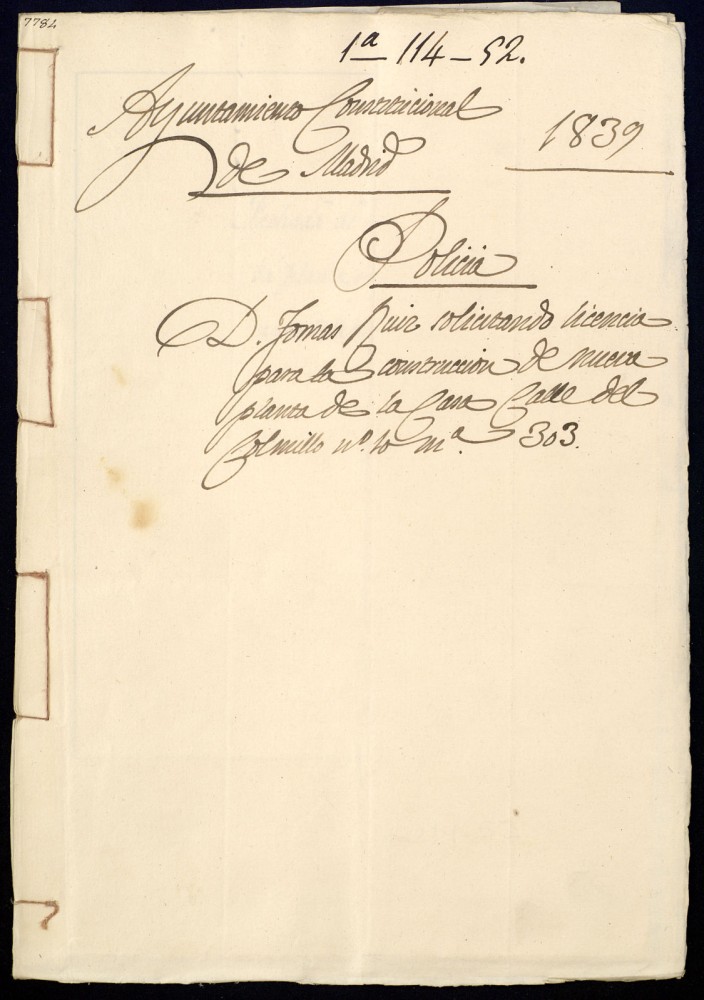 7784
1ª 114-52.
Ayuntamiento Constitucional
de Madrid
1839
Policia
D. Tomas Ruiz solicitando licencia
para la construccion de nueva
planta de la Casa Calle del
Colmillo nº 10 mª. 303.